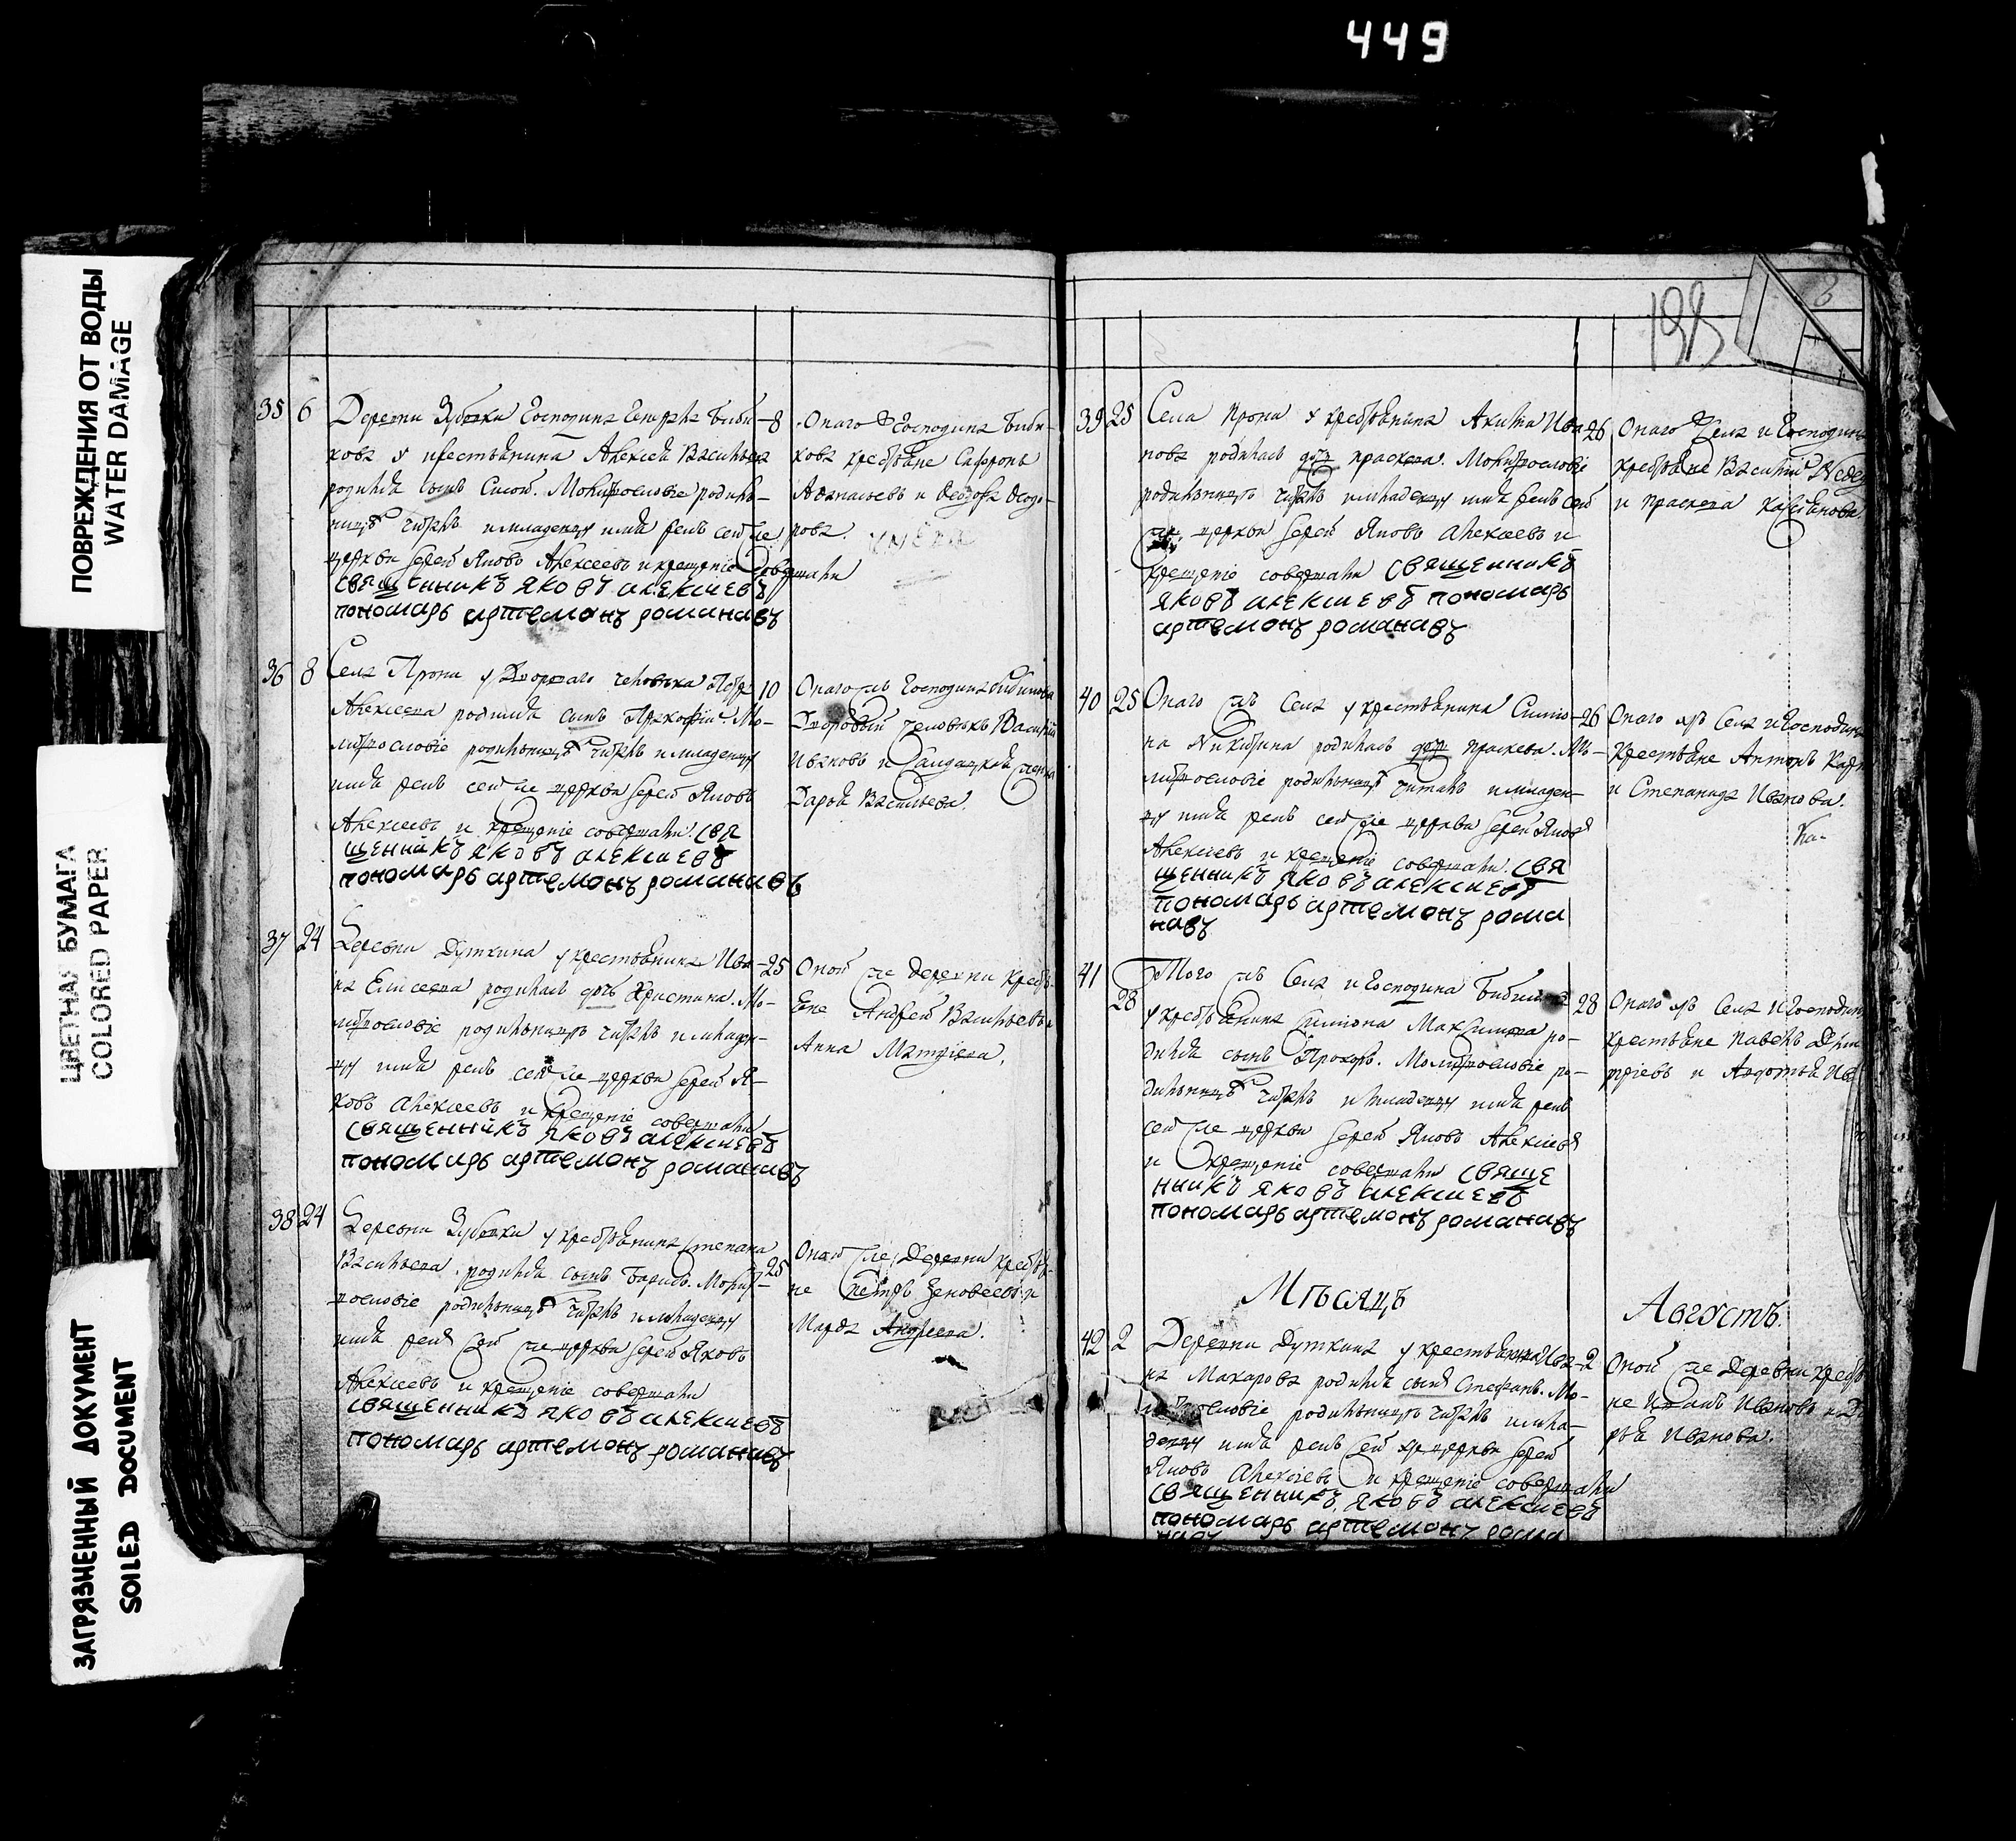 449
ПОВРЕЖДЕНИЯ ОТ ВОДЫ
WATER DAMAGE
ЦВЕТНАЯ БУМАГА
COLORED PAPER
ЗАГРЯЗНЕННЫЙ ДОКУМЕНТ
SOILED DOCUMENT
35 6 Деревни Зубовки Господина Биби-
кова у крестьянина Алексея Васильева
родился сынъ Молитвословіе родиль-
ницѣ читалъ и младенцу имя рекъ сей же
церкви Іерей Яковъ Алексеевъ и крещеніе совершали
священникъ яковъ алексиевъ
пономарь артемонъ романавъ
8 Онаго Господина Биби-
кова крестьяне Сафронъ
Афанасьевъ и Федо-
рова.
36 8 Села Прони у Двороваго человека Петра
Алексеева родился сынъ Прокофій Мо-
литвословіе родильницѣ читалъ и младенцу
имя рекъ сей же церкви Іерей Яковъ
Алексеевъ и крещеніе совершали. свя
щенникъ яковъ алексиевъ
пономарь артемонъ романавъ
10 Онаго жъ Господина Бибикова
Дворовый человѣкъ Василій
Ивановъ и
Дарья Васильева.
37 24 Деревни Дуткина у крестьянина Ива-
на Елисеева родилась дочь Христина. Мо-
литвословіе родильницѣ читалъ и младен-
цу имя рекъ сей же церкви Іерей Я-
ковъ Алексеевъ и крещеніе совершали
священникъ яковъ алексиевъ
пономарь артемонъ романавъ
25 Оной же деревни крестья-
не Андрей Васильевъ и
Анна Матвіева.
38 24 Деревни Зубовки у крестьянина Степана
Васильева. родился сынъ Борисъ. Молит-
вословіе родильницѣ читалъ и младенцу
имя рекъ сей же церкви Іерей Яковъ
Алексиевъ и крещеніе совершали
священникъ яковъ алексиевъ
пономарь артемонъ романавъ
25 Оной же Деревни крестья-
не Петръ Зеновеевъ и
Марфа Андреева.
39 25 Села Прони у крестьянина Акима Ива-
нова родилась дочь праскева. Молитвословіе
родильницѣ читалъ и младенцу имя рекъ сей
же церкви Іерей Яковъ Алексеевъ и
крещеніе совершали священникъ
яковъ алексиевъ пономарь
артемонъ романавъ
26 Онаго Села и Господина
крестьяне Василій
и праскева
40 25 Онаго жъ Села у крестьянина Симио-
на Никитина родилась дочь праскева. Мо-
литвословіе родильницѣ читалъ и младен-
цу имя рекъ сей же церкви Іерей Яковъ
Алексиевъ и крещеніе совершали. свя
щенникъ яковъ алексиевъ
пономарь артемонъ рома
навъ
26 Онаго жъ Села и Господина
Крестьяне Антонъ
и Степанида Иванова.
41 28 Того жъ Села и Господина Бибикова
у крестьянина Симиона Максимова ро-
дился сынъ Прохоръ. Молитвословіе ро-
дильницѣ читалъ и младенцу имя рекъ
сей же церкви Іерей Яковъ Алексіевъ
и крещеніе совершали свяще
нникъ яковъ алексиевъ
пономарь артемонъ романавъ
28 Онаго жъ Села и Господина
крестьяне Павелъ Дми-
тріевъ и Авдотья
Мѣсяцъ Августъ.
42 2 Деревни Дуткина у крестьянина Ива-
на Макарова родился сынъ Стефанъ. Мо-
литвословіе родильницѣ читалъ и мла-
денцу имя рекъ сей же церкви Іерей
Яковъ Алексіевъ и крещеніе совершали
священникъ яковъ алексиевъ
пономарь артемонъ рома
навъ
2 Оной же Деревни крестья-
не Ивановъ и
Иванова.